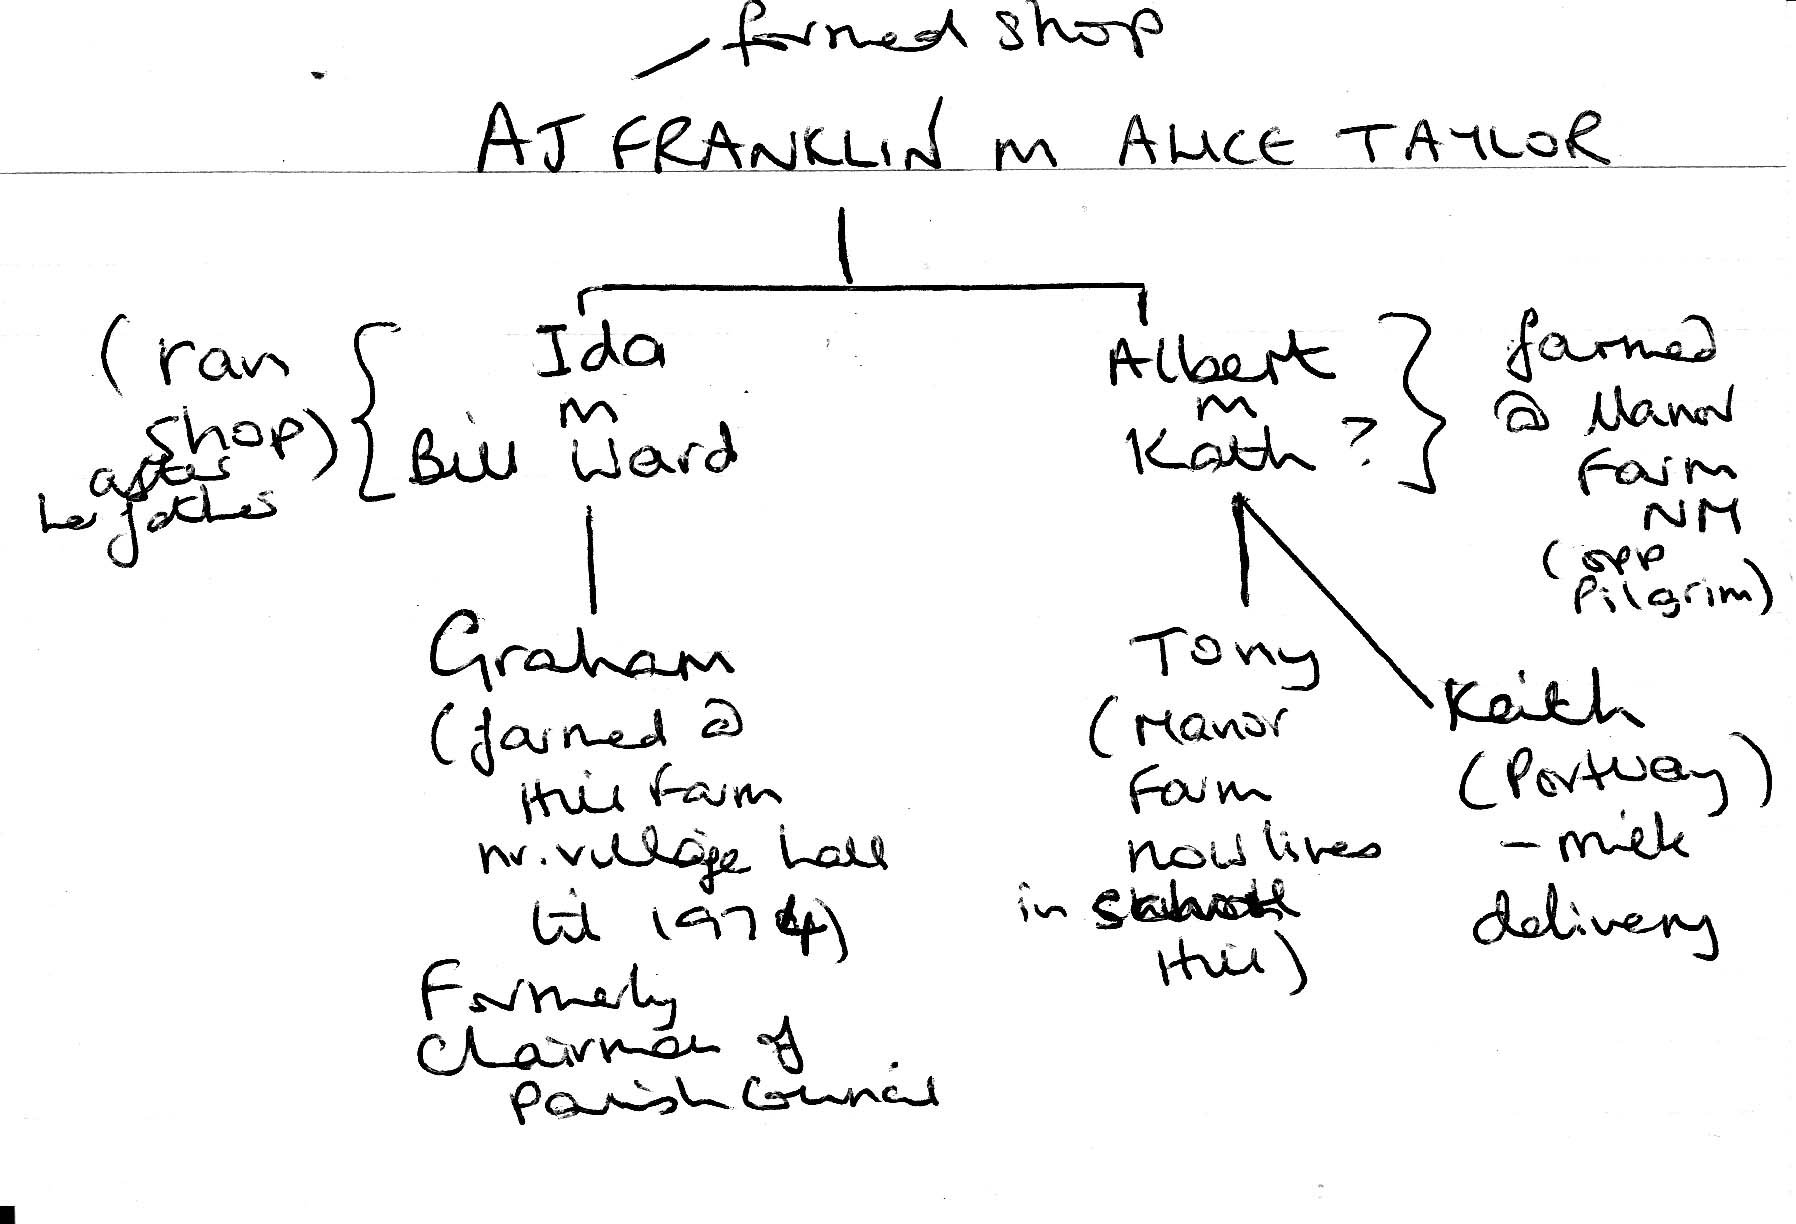 formed shop
AJ FRANKLIN m ALICE TAYLOR
(ran
shop)
after
her father
Ida
m
Bill Ward
Albert
m
Kath ?
farmed
@ Manor
Farm
NM
(opp
Pilgrim)
Graham
(farmed @
Hill Farm
nr. village hall
til 1974)
Formerly
Chairman of
Parish Council
Tony
(Manor
Farm
now lives
in
Hill)
Keith
(Portway)
- milk
delivery